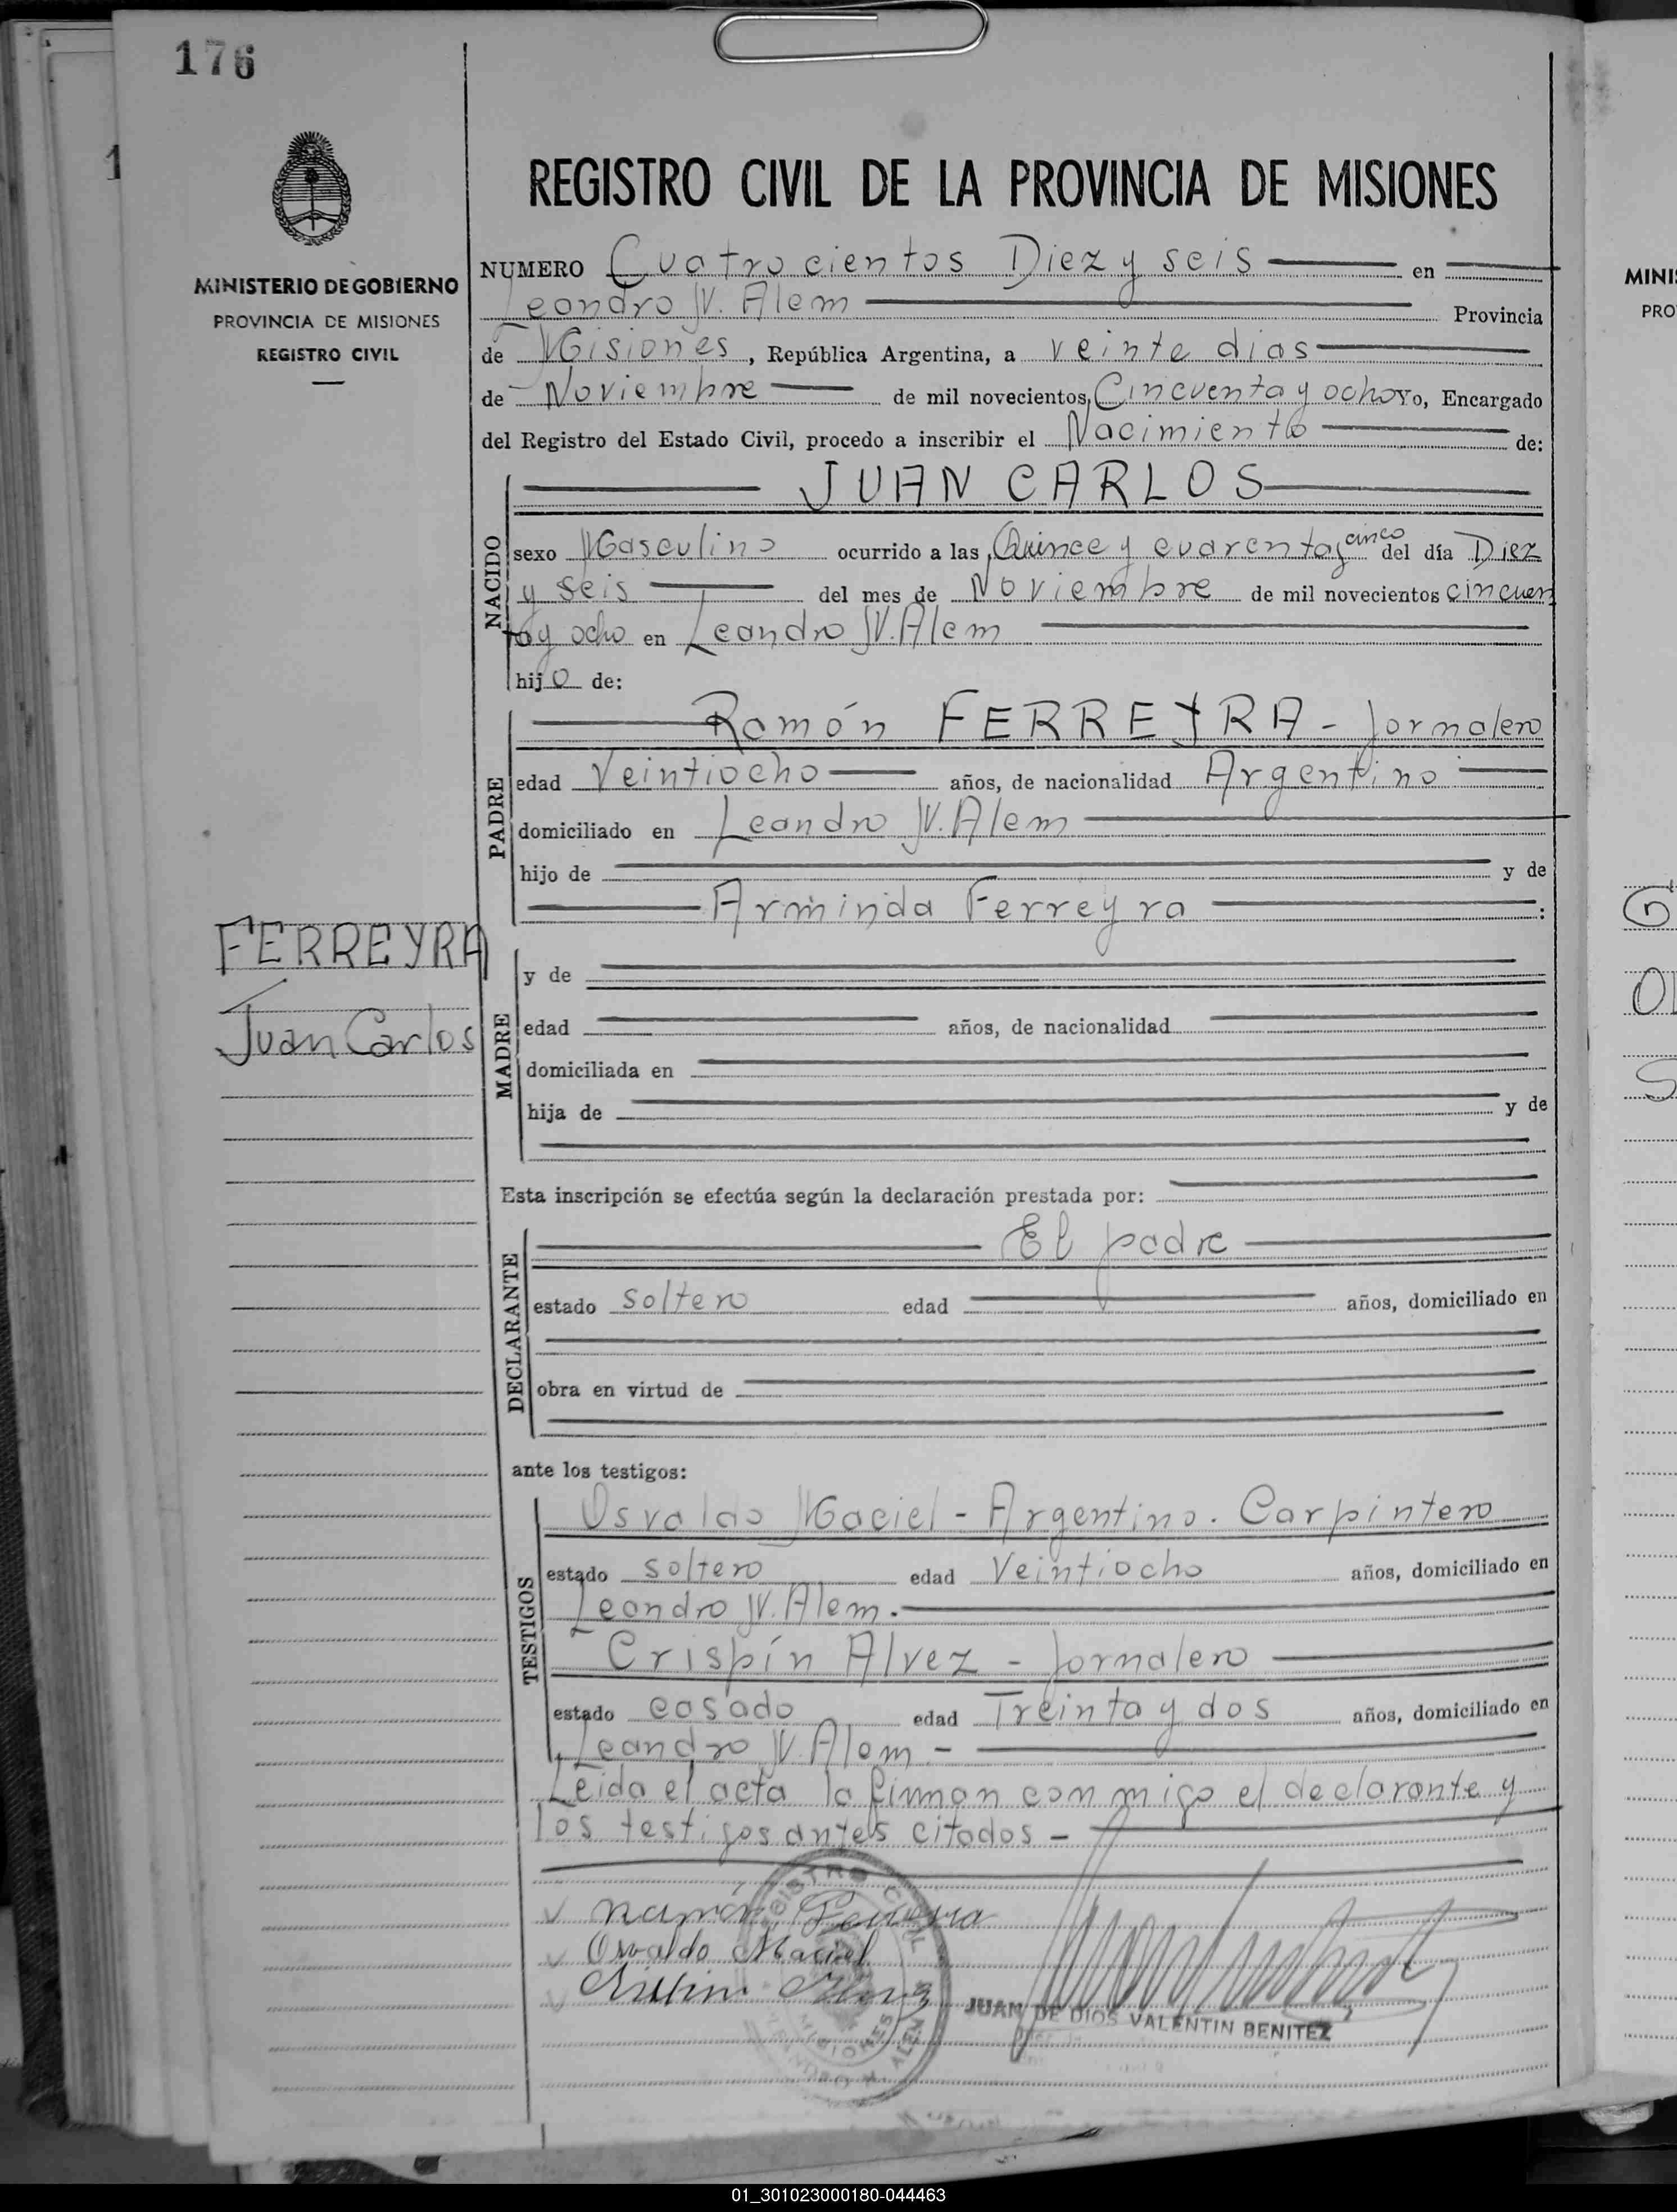 176
MINISTERIO DE GOBIERNO
PROVINCIA DE MISIONES
REGISTRO CIVIL
REGISTRO CIVIL DE LA PROVINCIA DE MISIONES
NUMERO Cuatrocientos Diez y seis en
Leandro N. Alem Provincia
de Misiones, República Argentina, a veinte dias
de Noviembre de mil novecientos, Cincuenta y ocho Yo, Encargado
del Registro del Estado Civil, procedo a inscribir el Nacimiento de:
NACIDO
JUAN CARLOS
sexo Masculino ocurrido a las Quince y cuarenta y cinco del día Diez
y seis del mes de Noviembre de mil novecientos cincuen
ta y ocho en Leandro N. Alem
hijo de:
PADRE
Ramón FERREYRA - Jornalero
edad Veintiocho años, de nacionalidad Argentino
domiciliado en Leandro N. Alem
hijo de y de
Arminda Ferreyra :
FERREYRA
Juan Carlos
MADRE
y de
edad años, de nacionalidad
domiciliada en
hija de y de
Esta inscripción se efectúa según la declaración prestada por:
DECLARANTE
El padre
estado soltero edad años, domiciliado en
obra en virtud de
ante los testigos:
TESTIGOS
Osvaldo Maciel - Argentino. Carpintero
estado soltero edad Veintiocho años, domiciliado en
Leandro N. Alem.
Crispín Alvez - Jornalero
estado casado edad Treinta y dos años, domiciliado en
Leandro N. Alem -
Leida el acta la firman con migo el declarante y
los testigos antes citados -
Ramón Ferreyra
Osvaldo Maciel
JUAN DE DIOS VALENTIN BENITEZ
REGISTRO CIVIL
MISIONES
LEANDRO N. ALEM
MINI
PRO
01_301023000180-044463